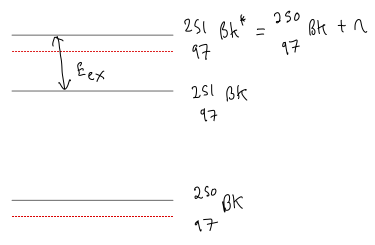 251 97 Bk* = 250 97 Bk + n
Eex
251 97 Bk
250 97 Bk